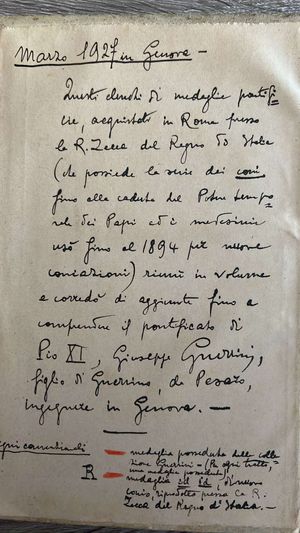 Marzo 1927 in Genova —
Questi elenchi di medaglie pontifi
cie, acquistati in Roma presso
la R. Zecca del Regno d'Italia
(che possiede la serie dei coni,
fino alla caduta del Potere tempo
rale dei Papi ed i medesimi
usò fino al 1894 per nuove
coniazioni) riunì in volume
e corredò di aggiunte fino a
comprendere il pontificato di
Pio XI, Giuseppe Guerrini,
figlio di Guerrino, da Pesaro,
ingegnere in Genova. —
segni convenzionali
— medaglia posseduta dalla colle
zione Guerrini — (Per ogni tratto,
una medaglia posseduta)
R — medaglia id id, di nuovo
conio, riprodotta presso la R.
Zecca del Regno d'Italia. —